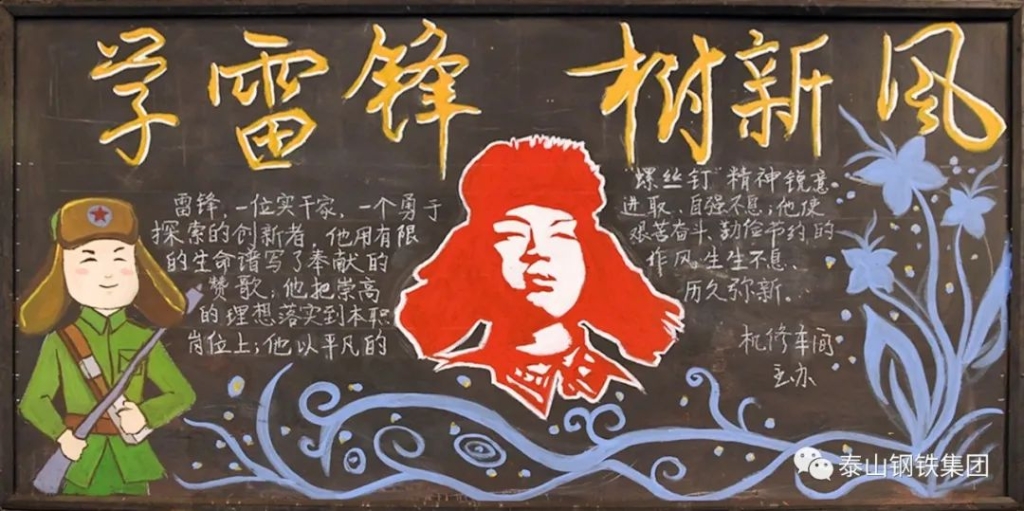 学雷锋 树新风
雷锋,一位实干家,一个勇于
探索的创新者,他用有限
的生命谱写了奉献的
赞歌;他把崇高
的理想落实到本职
岗位上;他以平凡的
“螺丝钉”精神锐意
进取、自强不息;他使
艰苦奋斗、勤俭节约的
作风生生不息、
历久弥新。
机修车间
主办
泰山钢铁集团